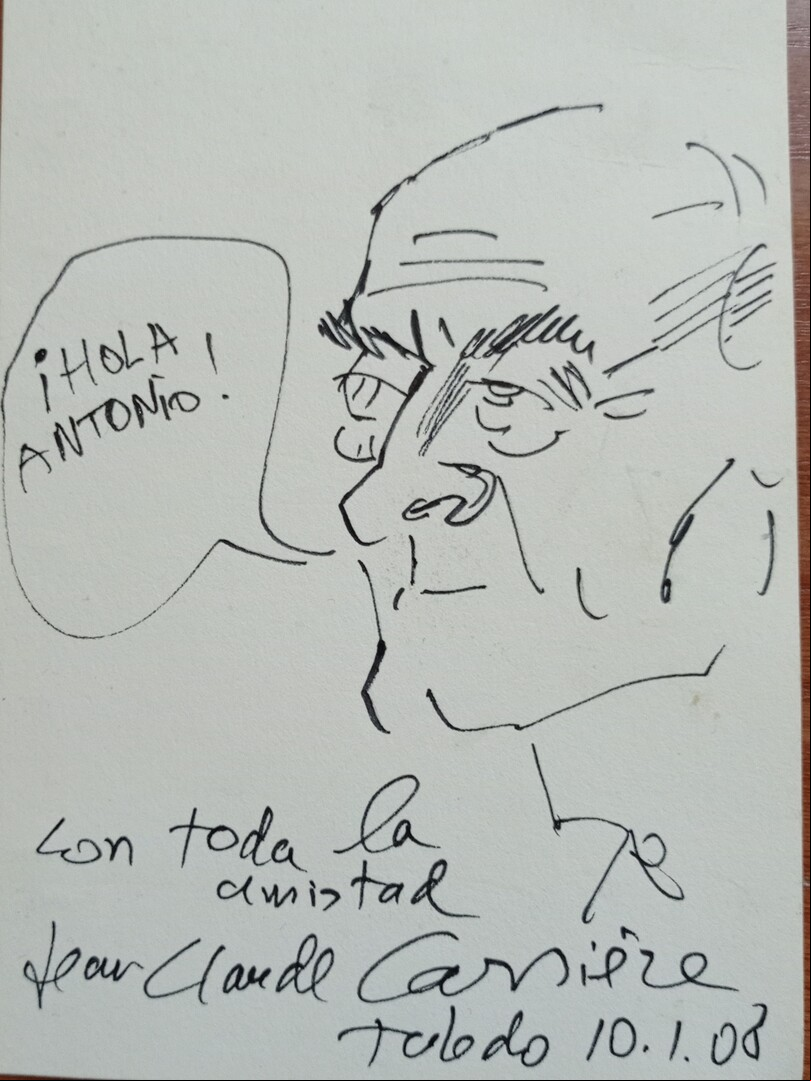 ¡HOLA
ANTONIO!
con toda la
amistad
Jean Claude Carrière
Toledo 10.1.08